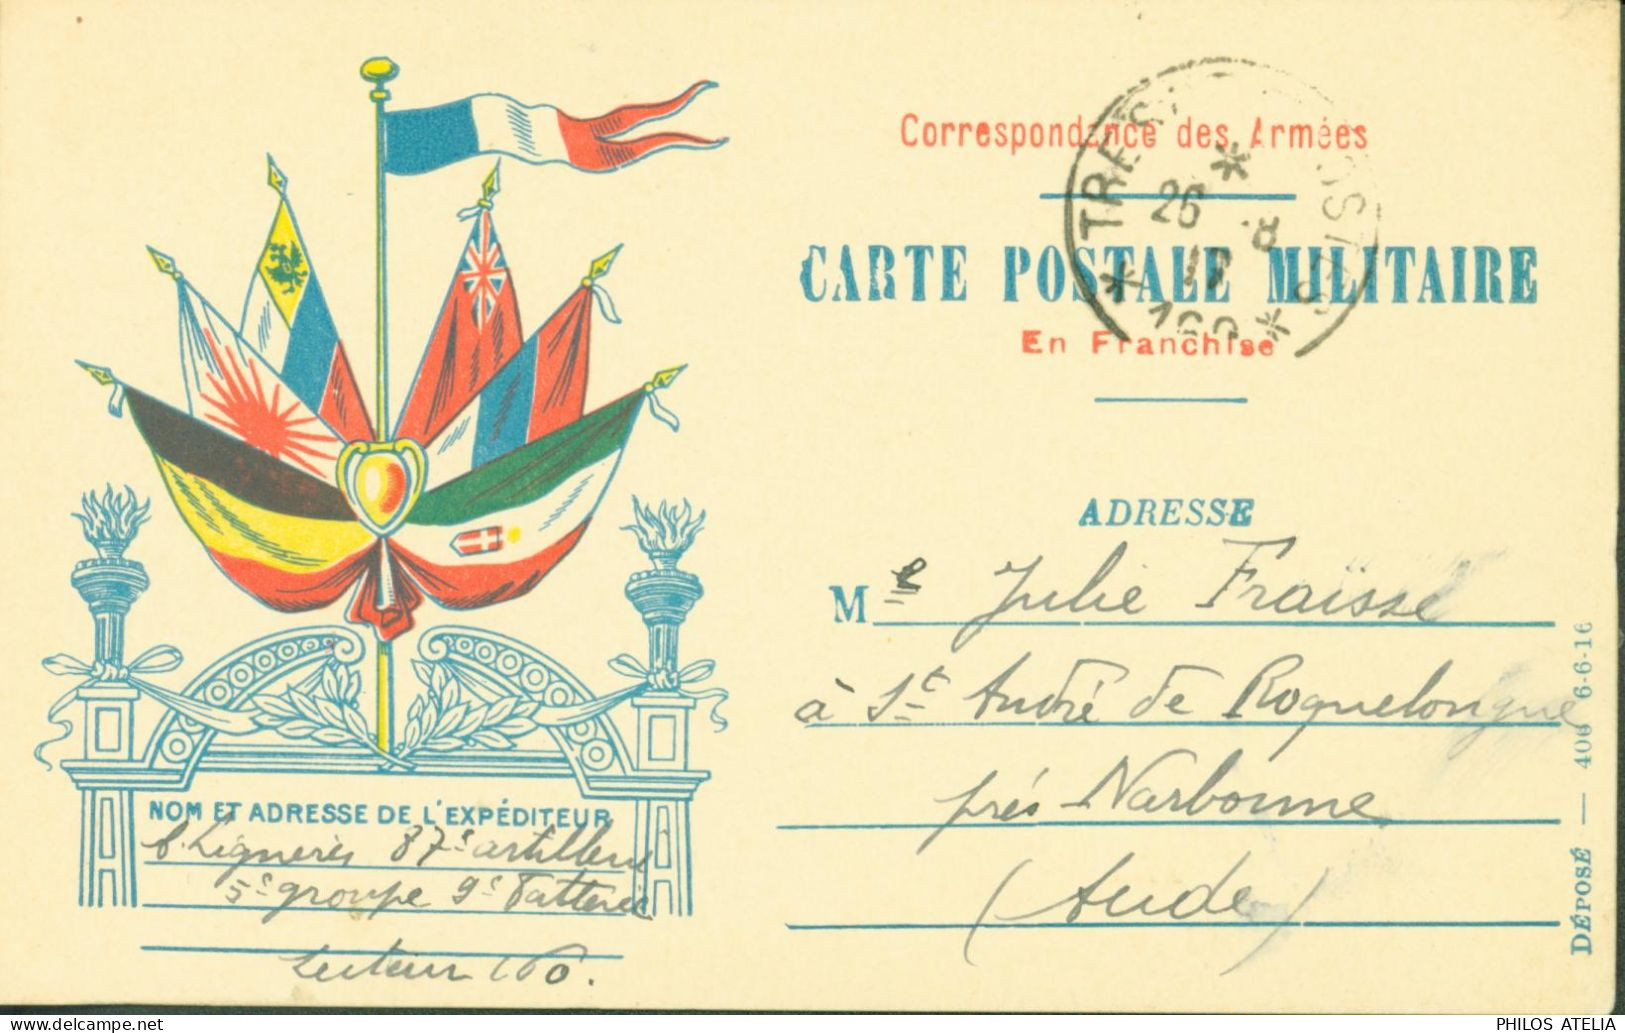 Correspondance des Armées
TRESOR ET POSTES
26 8
17
* 160 *
CARTE POSTALE MILITAIRE
En Franchise
ADRESSE
Mlle Julie Fraïsse
à St André de Roquelongue
près Narbonne
(Aude)
NOM ET ADRESSE DE L'EXPÉDITEUR
Lignerès 87e artillerie
5e groupe 9e Batterie
Secteur 160.
DÉPOSÉ — 406 6-6-16
PHILOS ATELIA